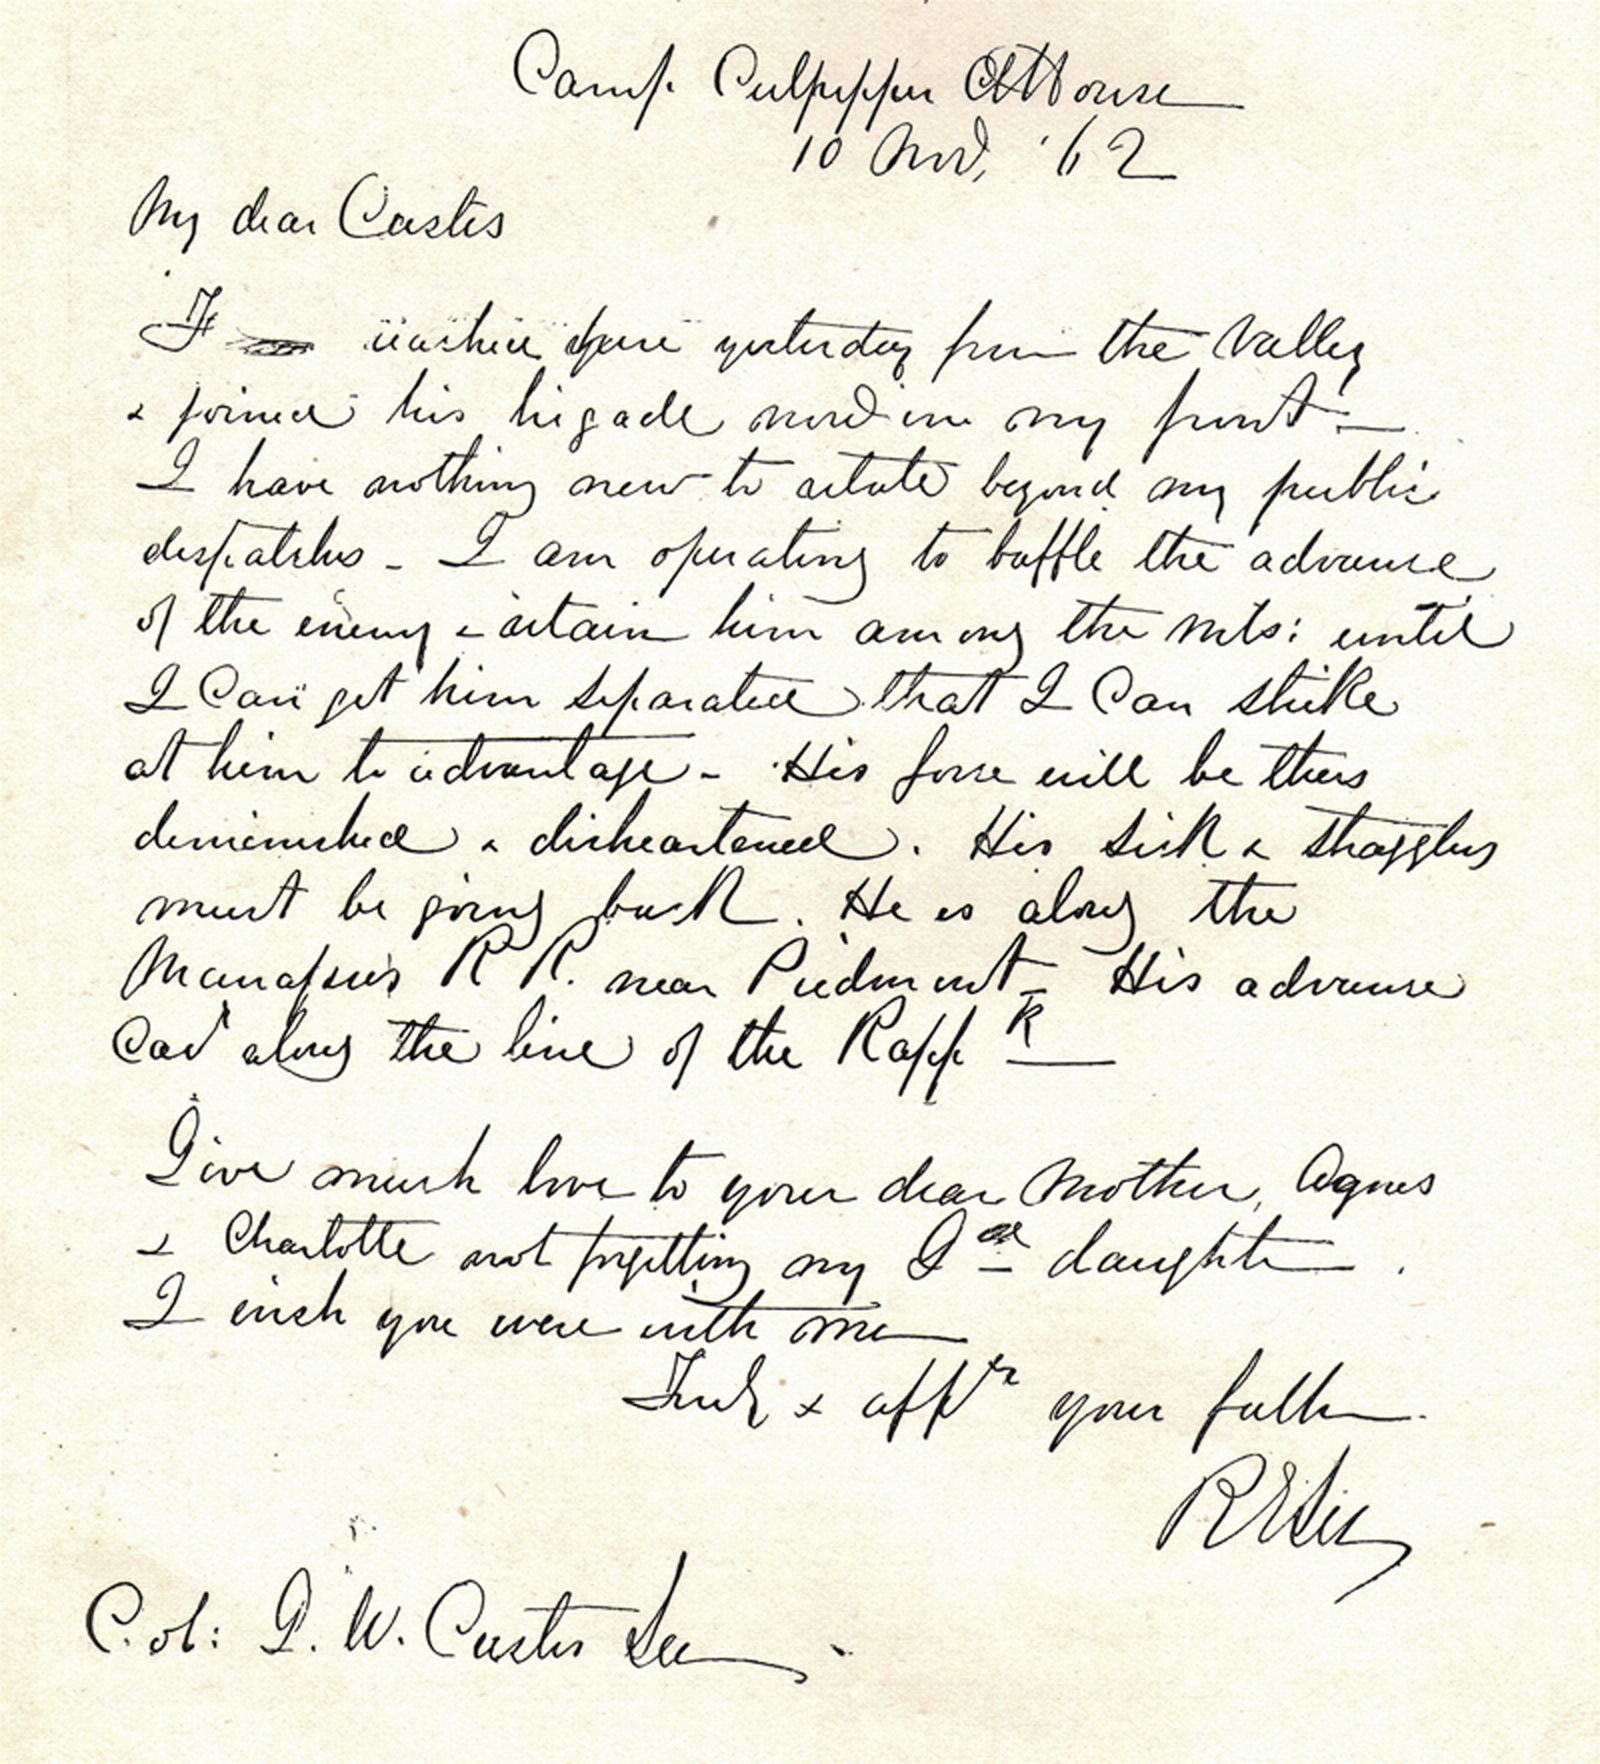 Camp Culpepper CtHouse
10 Nov, '62
My dear Custis
F reached here yesterday from the Valley
& joined his brigade now in my front —
I have nothing new to state beyond my public
despatches - I am operating to baffle the advance
of the enemy & retain him among the Mts: until
I Can get him separated that I Can strike
at him to advantage - His force will be thus
diminished & disheartened. His sick & stragglers
must be going back. He is along the
Manassas R R. near Piedmont - His advance
Cav along the line of the Rappk
Give much love to your dear Mother, Agnes
& Charlotte not forgetting my Gd daughter.
I wish you were with me
Truly & affly your father
RELee
Col: G. W. Custis Lee